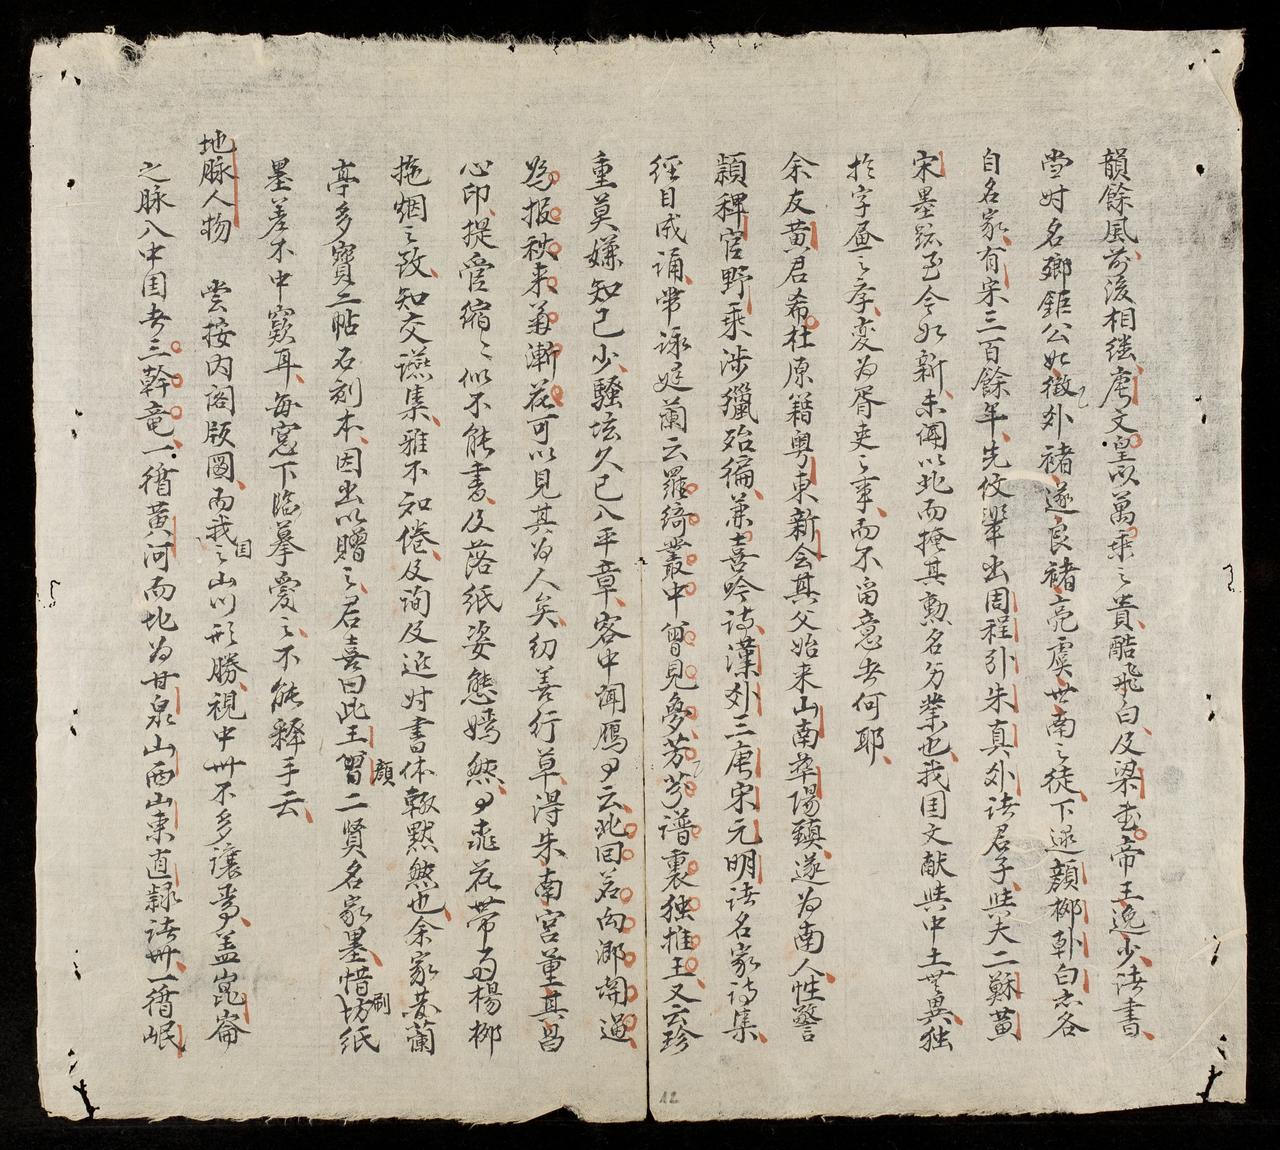 韻餘風前後相继唐文皇以萬乘之貴酷飛白及梁武帝王逸少諸書
當时名鄉鉅公如徵外褚遂良褚亮虞世南之徒下逮顔栁卦白亦各
自名家有宋三百餘年先伩輩出周程引朱真外諸君子與夫二蘇黄
宋墨跡至今如新未闻以此而掩其勲名勿業也我国文献與中土無異独
扵字畫之李变为胥吏之事而不畱意者何耶
余友黄君希杜原籍粤東新会其父始来山南葬陽鎮遂为南人性警
穎稗官野乘涉獵殆徧兼喜吟诗漢外三唐宋元明諸名家诗集
經目成诵常詠庭蘭云羅绮叢中曾見夢芳芬譜裏独推王又云珍
重莫嫌知己少騷坛久已八平章客中闻鴈有云北回若向郷関過
為报秋来菊漸花可以見其为人矣纫善行草得朱南宮董其昌
心印提管缩缩似不能書及落紙姿態嫣然有乖花帯雨楊栁
拖烟之致知交讌集雅不知倦及询及近时書体輙黙然也余家藏蘭
亭多寶二帖石刻本因出以贈之君喜曰此王顔二賢名家墨惜刷坊紙
墨差不中窽耳每窓下臨摹愛之不能释手云
地脉人物
嘗按内阁版圖而我国之山川形勝視中州不多讓焉盖崑崙
之脉八中国者三幹竜一循黄河而北为甘泉山西山東直隸諸州一循岷